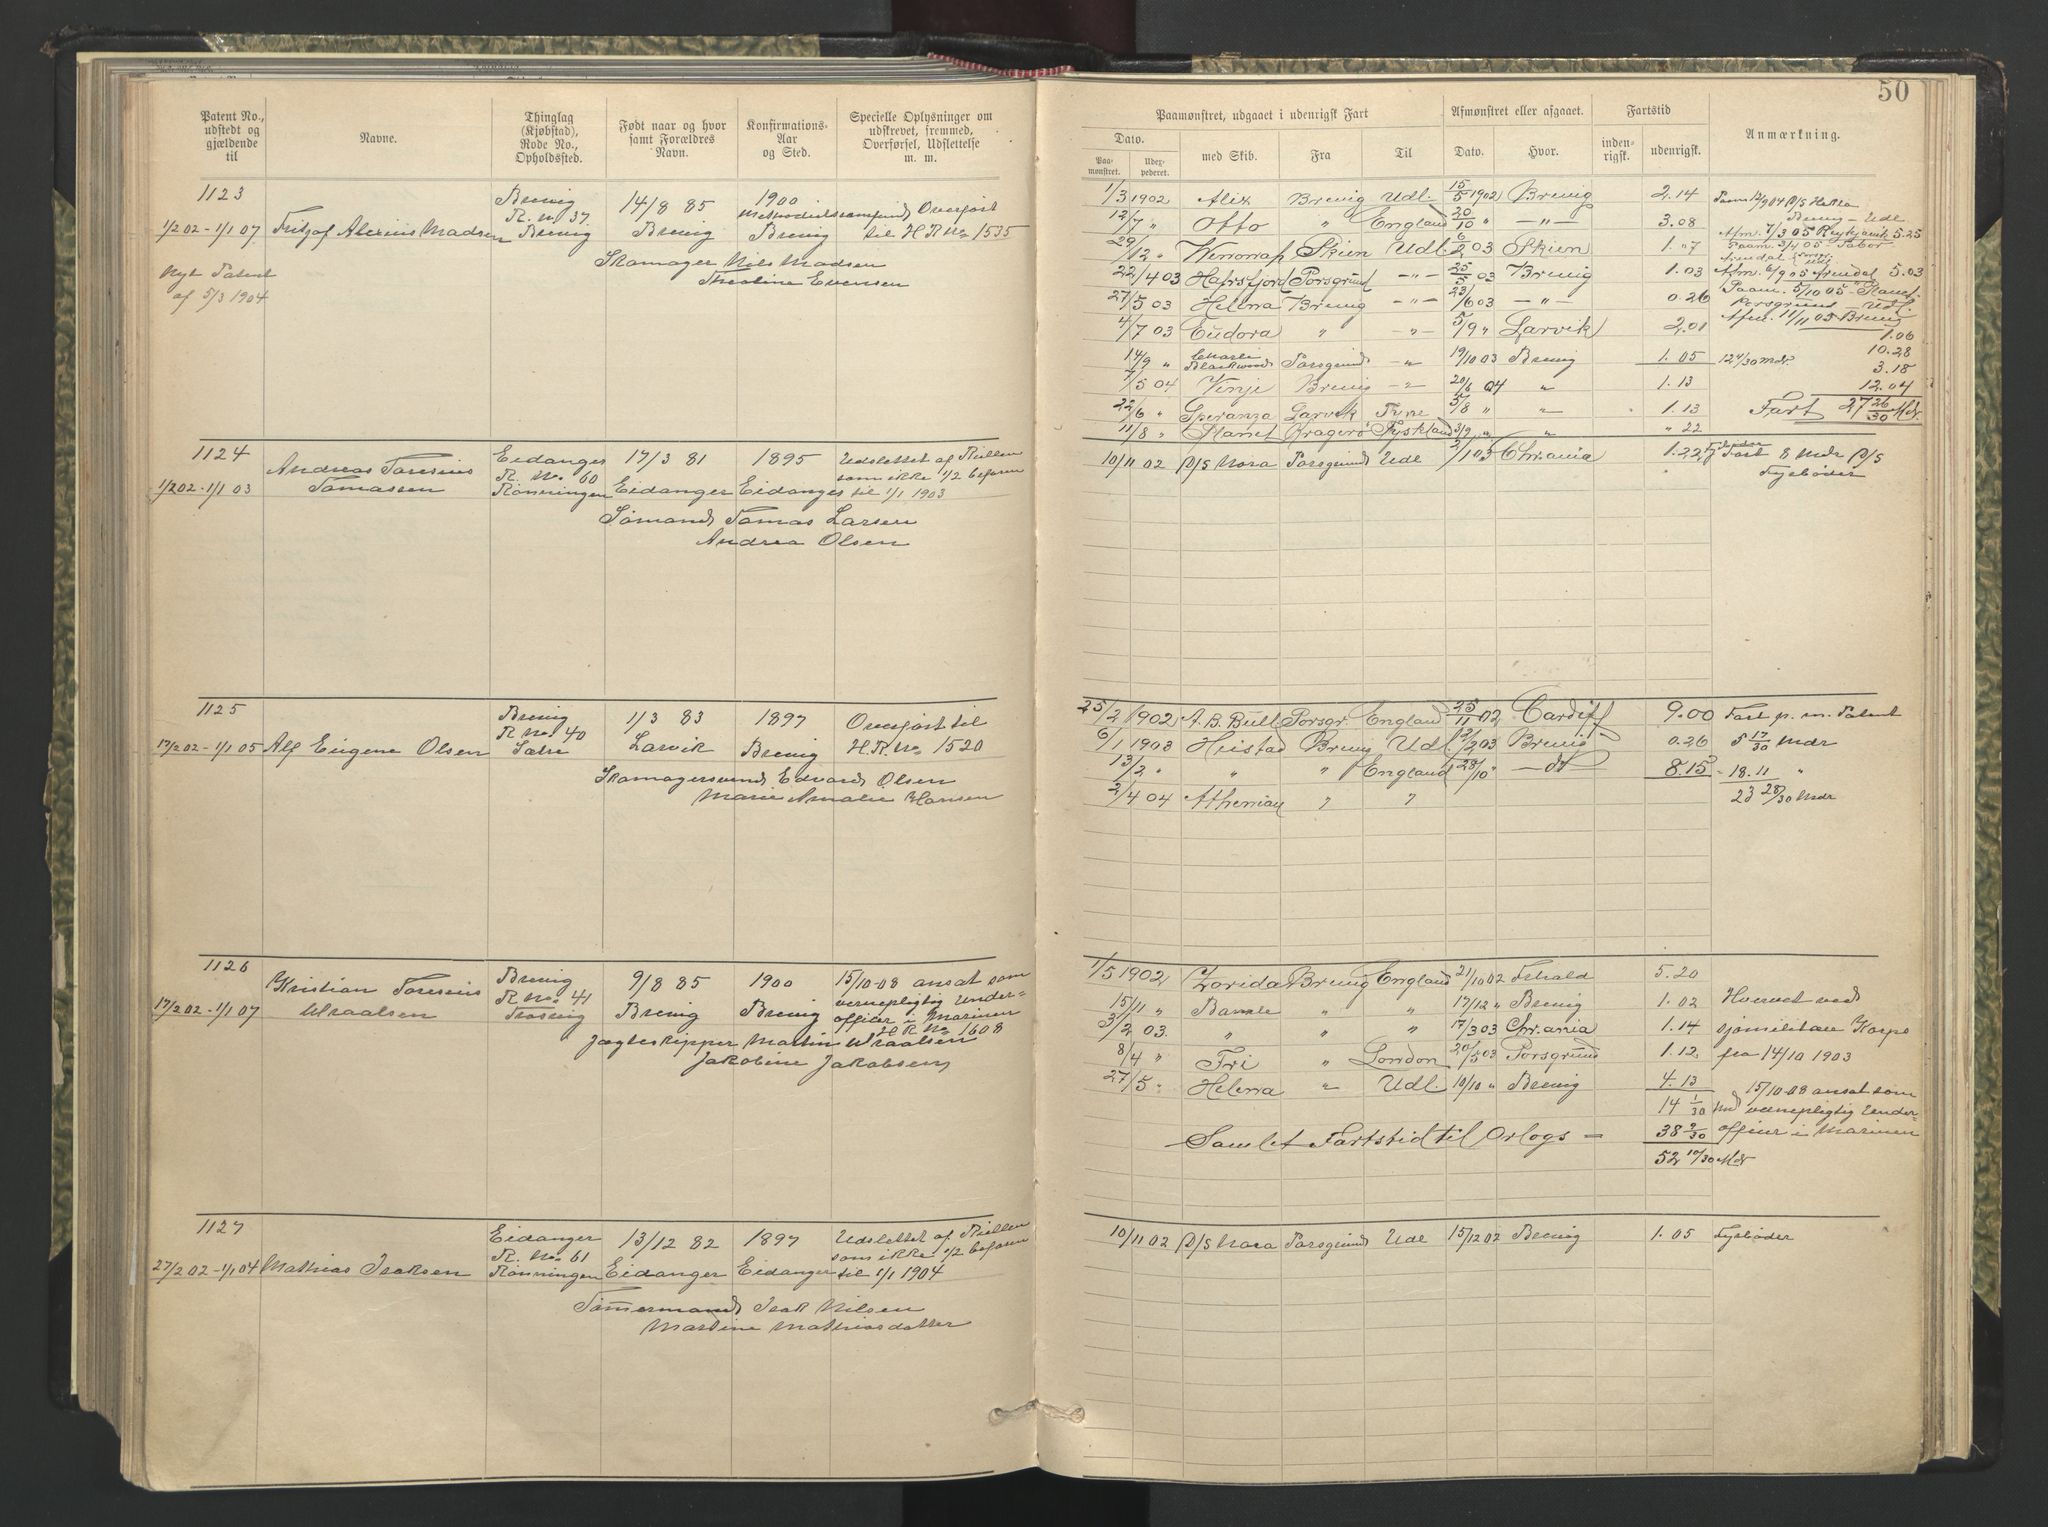 50
Patent No., udstedt og gjældende til
Navne.
Thinglag (Kjøbstad), Rode No., Opholdssted.
Født naar og hvor samt Forældres Navn.
Konfirmations-Aar og Sted.
Specielle Oplysninger om udskrevet, fremmed, Overførsel, Udslettelse m. m.
Paamønstret, udgaaet i udenrigsk Fart
Afmønstret eller afgaaet.
Fartstid
Anmærkning.
Dato.
Paamønstret.
Udexpederet.
med Skib.
Fra
Til
Dato.
Hvor.
indenrigsk.
udenrigsk.
1123
1/2 02 - 1/1 07 Fritjof Alexius Madsen
Brevig R. No 37 Brevig
14/8 85 Brevig
1900 Methodistsamfund Brevig
Overført til H R No 1535
Skomager Nils Madsen
Theoline Evensen
Nyt Patent
af 5/3 1904
1/3 1902 Alix Brevig Udl. 15/5 1902 Brevig 2.14
12/7 " Otto " England 20/10 " — " — 3.08
29/12 " Skien Udl. 6/2 03 Skien 1. "7
22/4 03 Hafrsfjord Porsgrund — " — 25/5 03 Brevig 1.03
27/5 03 Helena Brevig — " — 23/6 03 — " — 0.26
4/7 03 Eudora " — " — 5/9 " Larvik 2.01
14/9 " Charlie Blackwood Porsgrund — " 19/10 03 Brevig 1.05
7/5 04 Venje Brevig — " 20/6 04 " 1.13
22/6 " Speranza Larvik Tyne 5/8 " " 1.13
11/8 " Planet Kragerø Tyskland 3/9 " " " 22
Paam 12/9 04 D/S Hekla
Brevig - Udl
Afm. 7/3 05 Reykjavik 5.25
Paam. 3/4 05 Tabor
Arendal Udl
Afm. 6/9 05 Arendal 5.03
Paam. 5/10 05 Planet
Porsgrund — Udl.
Afm. 11/11 05 Brevig
1.06
10.28
12 4/30 Mdr. 3.18
12.04
Fart 27 26/30 Mdr.
1124
1/2 02 - 1/1 03 Andreas Toresius Tomassen
Eidanger R. No. 60 Rønningen
17/3 81 Eidanger
1895 Eidanger
Udslettet af Rullen
som ikke 1/2 befaren
til 1/1 1903
Sømand Tomas Larsen
Andrea Olsen
10/11 02 D/S Nora Porsgrund Udl 2/1 03 Chr.ania 1.22
Fart 8 Mdr D/S
Fyrbøder
1125
17/2 02 - 1/1 05 Alf Eugene Olsen
Brevig R No. 40
1/3 83 Larvik
1897 Brevig
Overført til H. R No 1520
Skomagersvend Edvard Olsen
Marie Amalie Hansen
25/2 1902 A. B. Bull Porsgr. England 25/11 02 Cardiff 9.00
6/1 1903 Heistad Brevig Udl. 2/2 03 Brevig 0.26
13/2 " " " England 28/10 " — do 8.15
2/4 04 Athenian " "
Fart p. m. Patent
5 17/30 Mdr
18.11 "
23 28/30 Mdr
1126
17/2 02 - 1/1 07 Kristian Toresius Wraalsen
Brevig R No. 41 Trosvig
9/8 85 Brevig
1900 Brevig
15/10-08 ansat som
vernepligtig Under-
officer i Marinen
H R No 1608
Jagteskipper Martin Wraalsen
Jakobine Jakobsen
1/5 1902 Zorida Brevig England 21/10 02 5.20
15/11 " Bamle " " 17/12 " Brevig 1.02
3/2 03. " " 17/3 03 Chr.ania 1.14
8/4 " Fri " London 20/5 03 Porsgrund 1.12
27/5 " Helena " Udl. 10/10 " Brevig 4.13
14 1/30 Md
Samlet Fartstid til Orlogs = 38 9/30
52 10/30 Mdr
Hvervet ved
sjømilitære Korps
fra 14/10 1903
15/10-08 ansat som
vernepligtig Under-
officer i Marinen
1127
27/2 02 - 1/1 04 Mathias Isaksen
Eidanger R. No 61 Rønningen
13/12 82 Eidanger
1897 Eidanger
Udslettet af Rullen
som ikke 1/2 befaren
til 1/1 1904
Tømmermand Isak Nilsen
Martine Mathiasdatter
10/11 02 D/S Nora Porsgrund Udl 15/12 02 Brevig 1.05 Fyrbøder